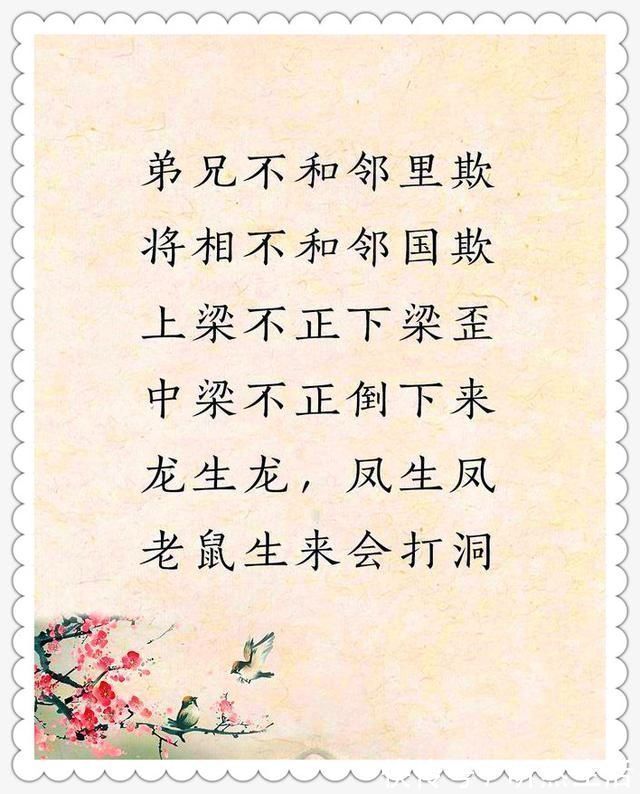 弟兄不和邻里欺
将相不和邻国欺
上梁不正下梁歪
中梁不正倒下来
龙生龙，凤生凤
老鼠生来会打洞